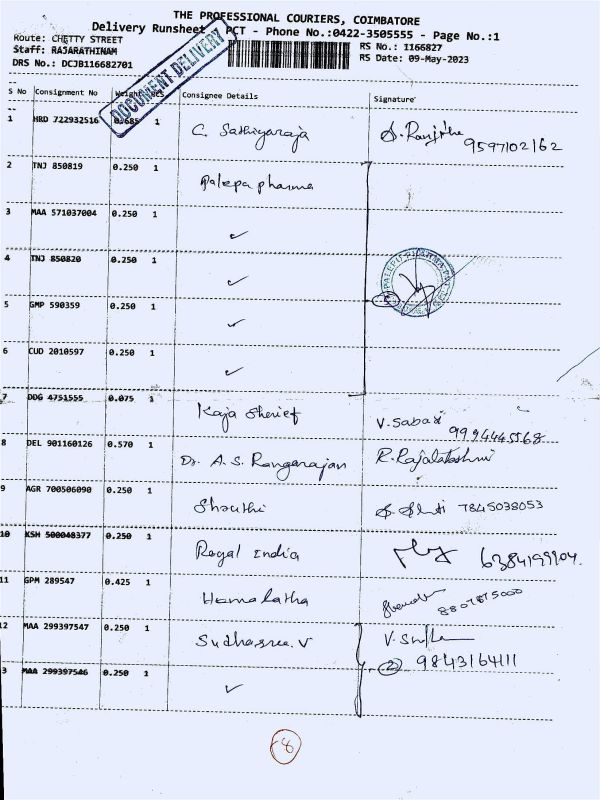 THE PROFESSIONAL COURIERS, COIMBATORE
Delivery Runsheet PCT - Phone No.:0422-3505555 - Page No.:1
Route: CHETTY STREET
Staff: RAJARATHINAM
DRS No.: DCJB116682701
RS No.: 1166827
RS Date: 09-May-2023
DOCUMENT DELIVERY
S No Consignment No Weight Pcs Consignee Details Signature
1 HRD 722932516 0.685 1 C. Sathiyaraja S. Ranjitha 9597102162
2 TNJ 850819 0.250 1 Palepa pharma
3 MAA 571037004 0.250 1 ✓
4 TNJ 850820 0.250 1 ✓
5 GMP 590359 0.250 1 ✓ 5
6 CUD 2010597 0.250 1 ✓
7 DDG 4751555 0.075 1 Kaja Sherief V. Sabari 9994445568
8 DEL 901160126 0.570 1 Dr. A.S. Rangarajan R. Rajalakshmi
9 AGR 700506090 0.250 1 Shruthi 7845038053
10 KSH 500048377 0.250 1 Royal India 6384199204.
11 GPM 289547 0.425 1 Hemalatha 8807875000
12 MAA 299397547 0.250 1 Sudhasree.V
2 9843164111
3 MAA 299397546 0.250 1 ✓
8